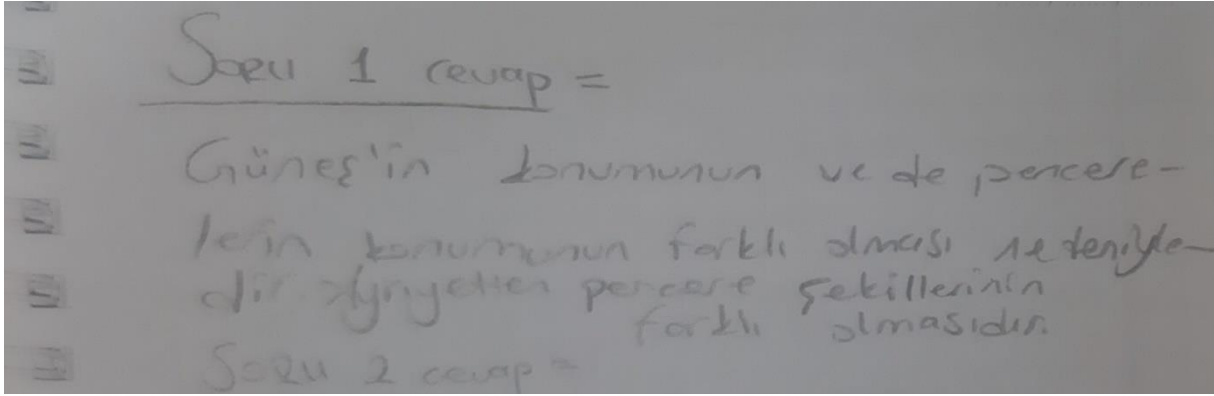 Soru 1 cevap =
Güneş'in konumunun ve de pencere-
lerin konumunun farklı olması nedeniyle-
dir Ayriyetten pencere şekillerinin
farklı olmasıdır.
Soru 2 cevap =